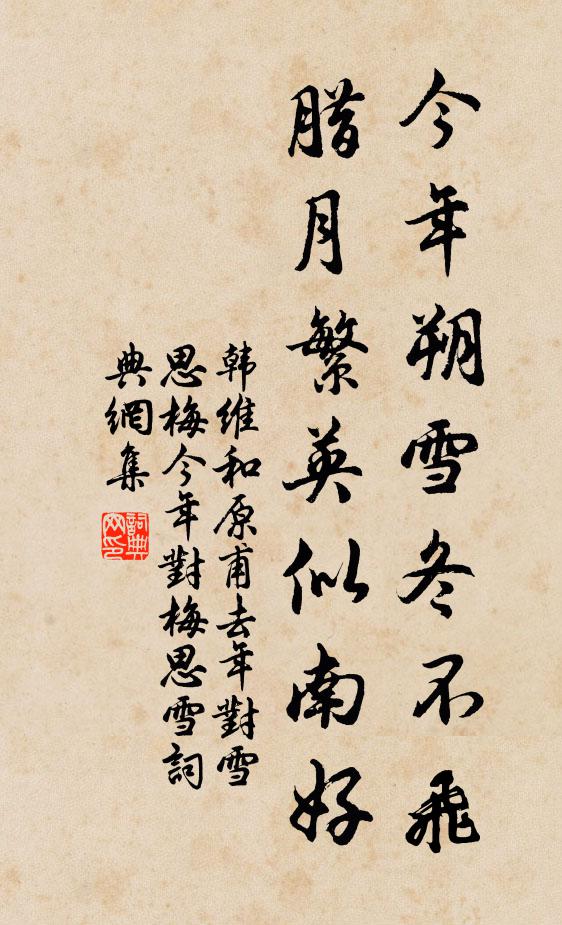 今年朔雪冬不飛
腊月繁英似南好
韩維和原甫去年對雪
思梅今年對梅思雪詞
典網集
詞典网印